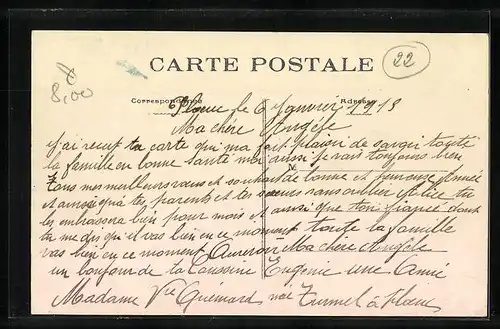 22
8,00
CARTE POSTALE
Correspondance
Adresse
le 6 Janvier 1918
Ma chère Angèle
J'ai reçu ta carte qui ma fait plaisir de savoir toute
la famille en bonne santé moi aussi je vais toujours bien
tous mes meilleurs vœux et souhait de bonne et heureuse Année
et aussi qu'à tes parents et tes sœurs sans oublier Alice tu
les embrassera bien pour mois et aussi que ton fiancé dont
tu me dis qu'il vas bien en ce moment toute la famille
vas bien en ce moment Aurevoir Ma chère Angèle
un bonjour de ta Cousine Eugénie une Amie
Madame Vve Guémard née à